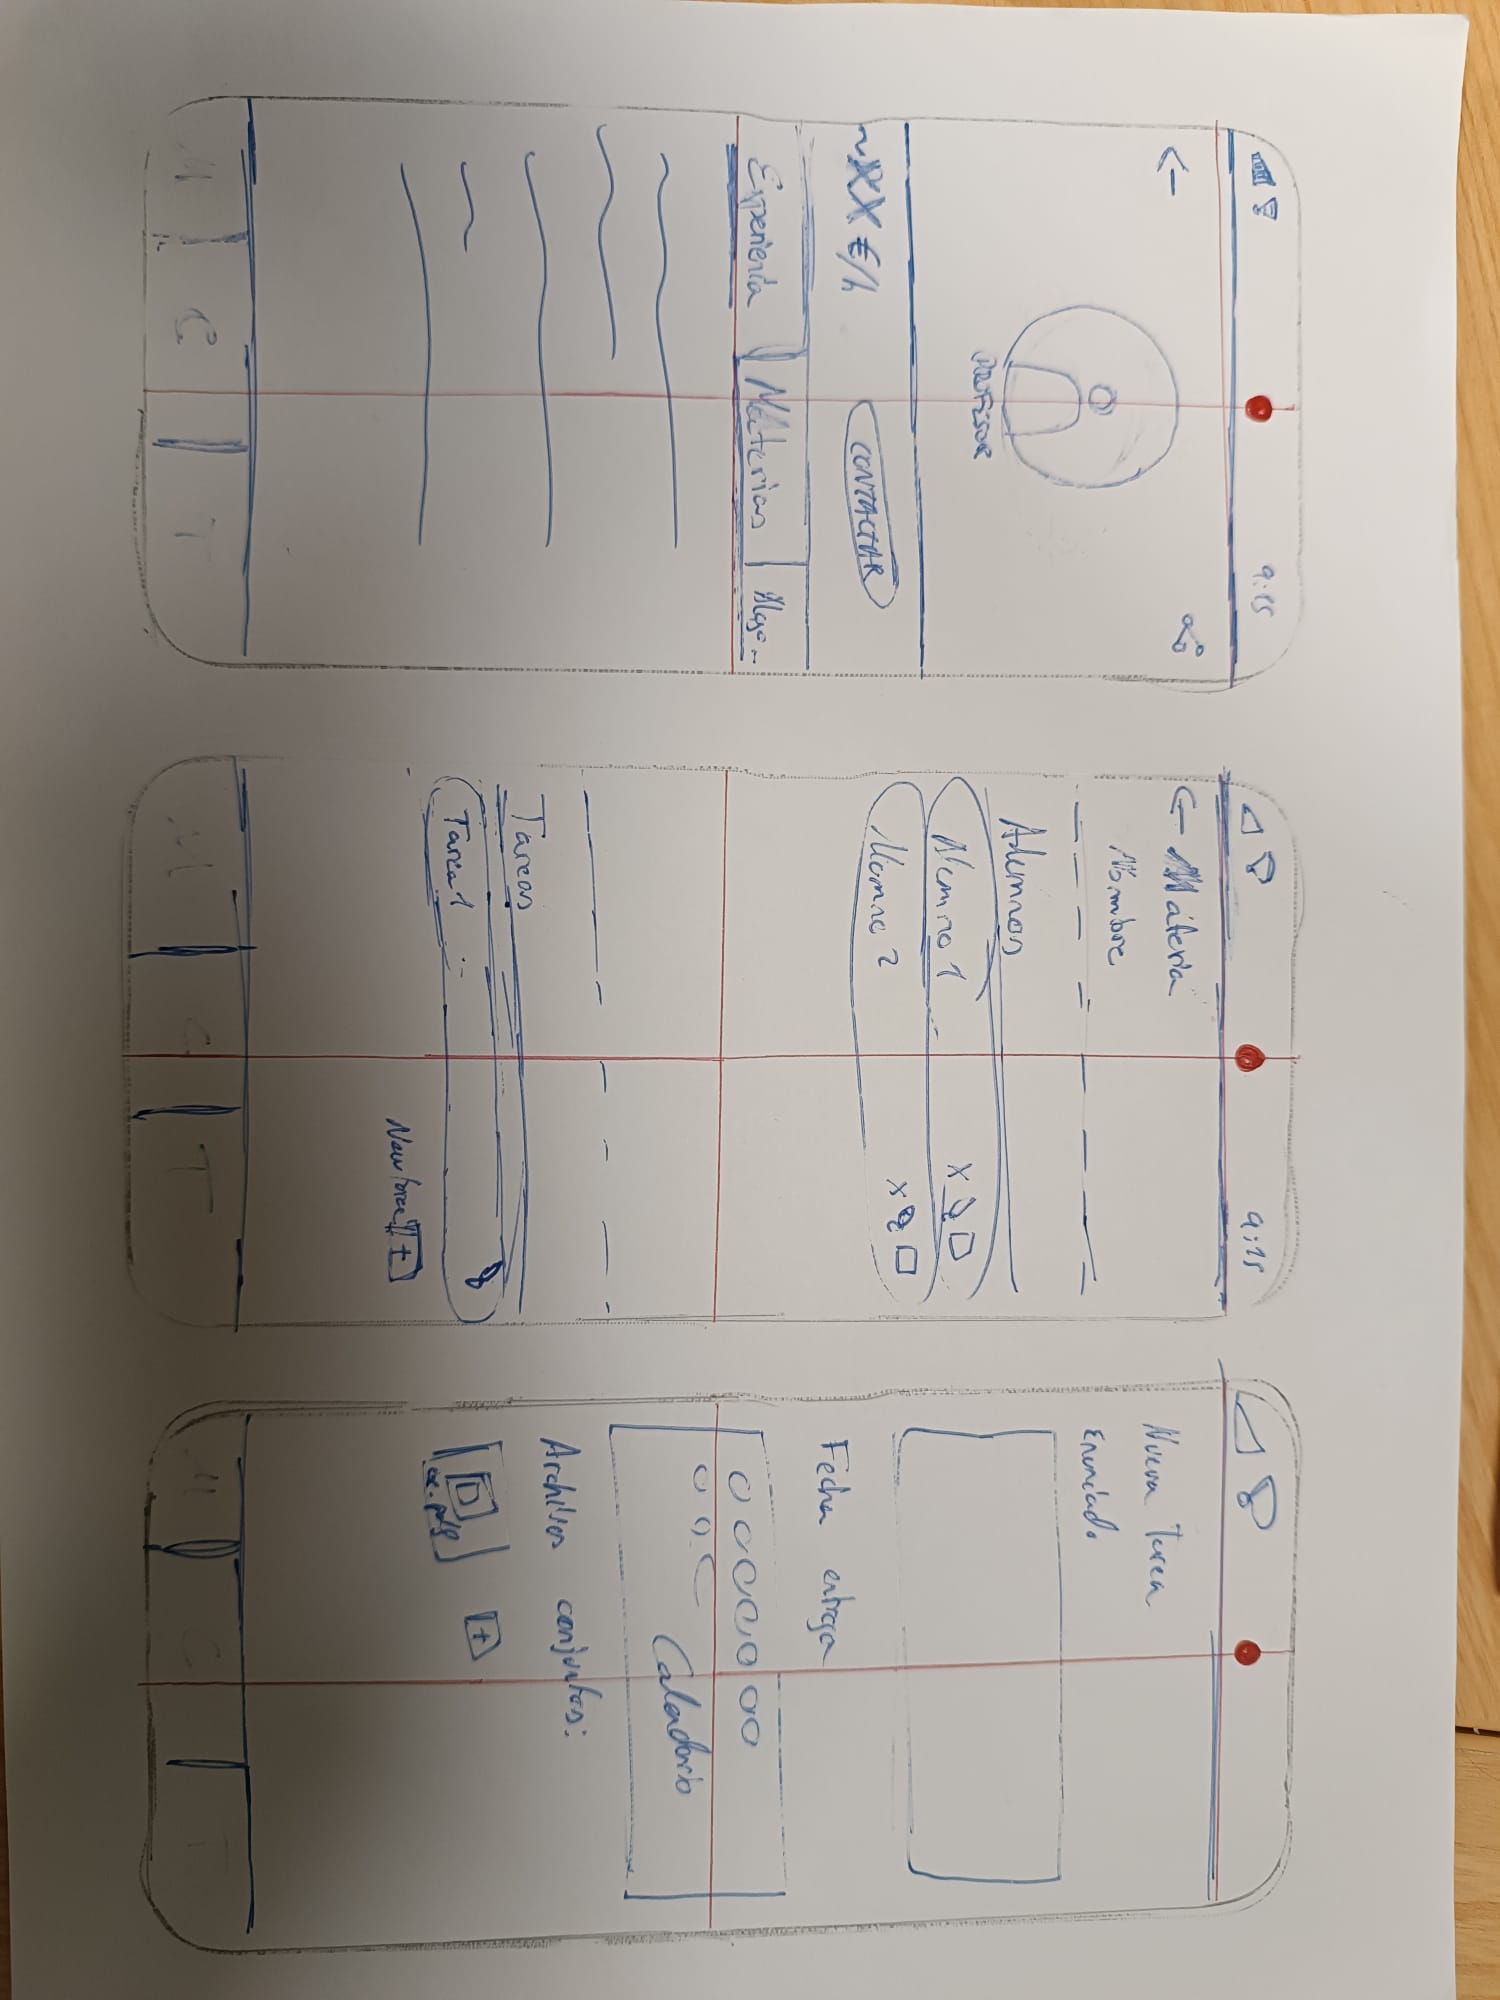 9:15
PROFESOR
~XX €/h
CONTACTAR
Experiencia
Materias
M
C
T
9:15
Materia
Nombre
Alumnos
Alumno 1
Alumno 2
Tareas
Tarea 1
M
C
T
Nueva Tarea
Enunciado
Fecha entrega
Calendario
Archivos conjuntos:
M
C
T